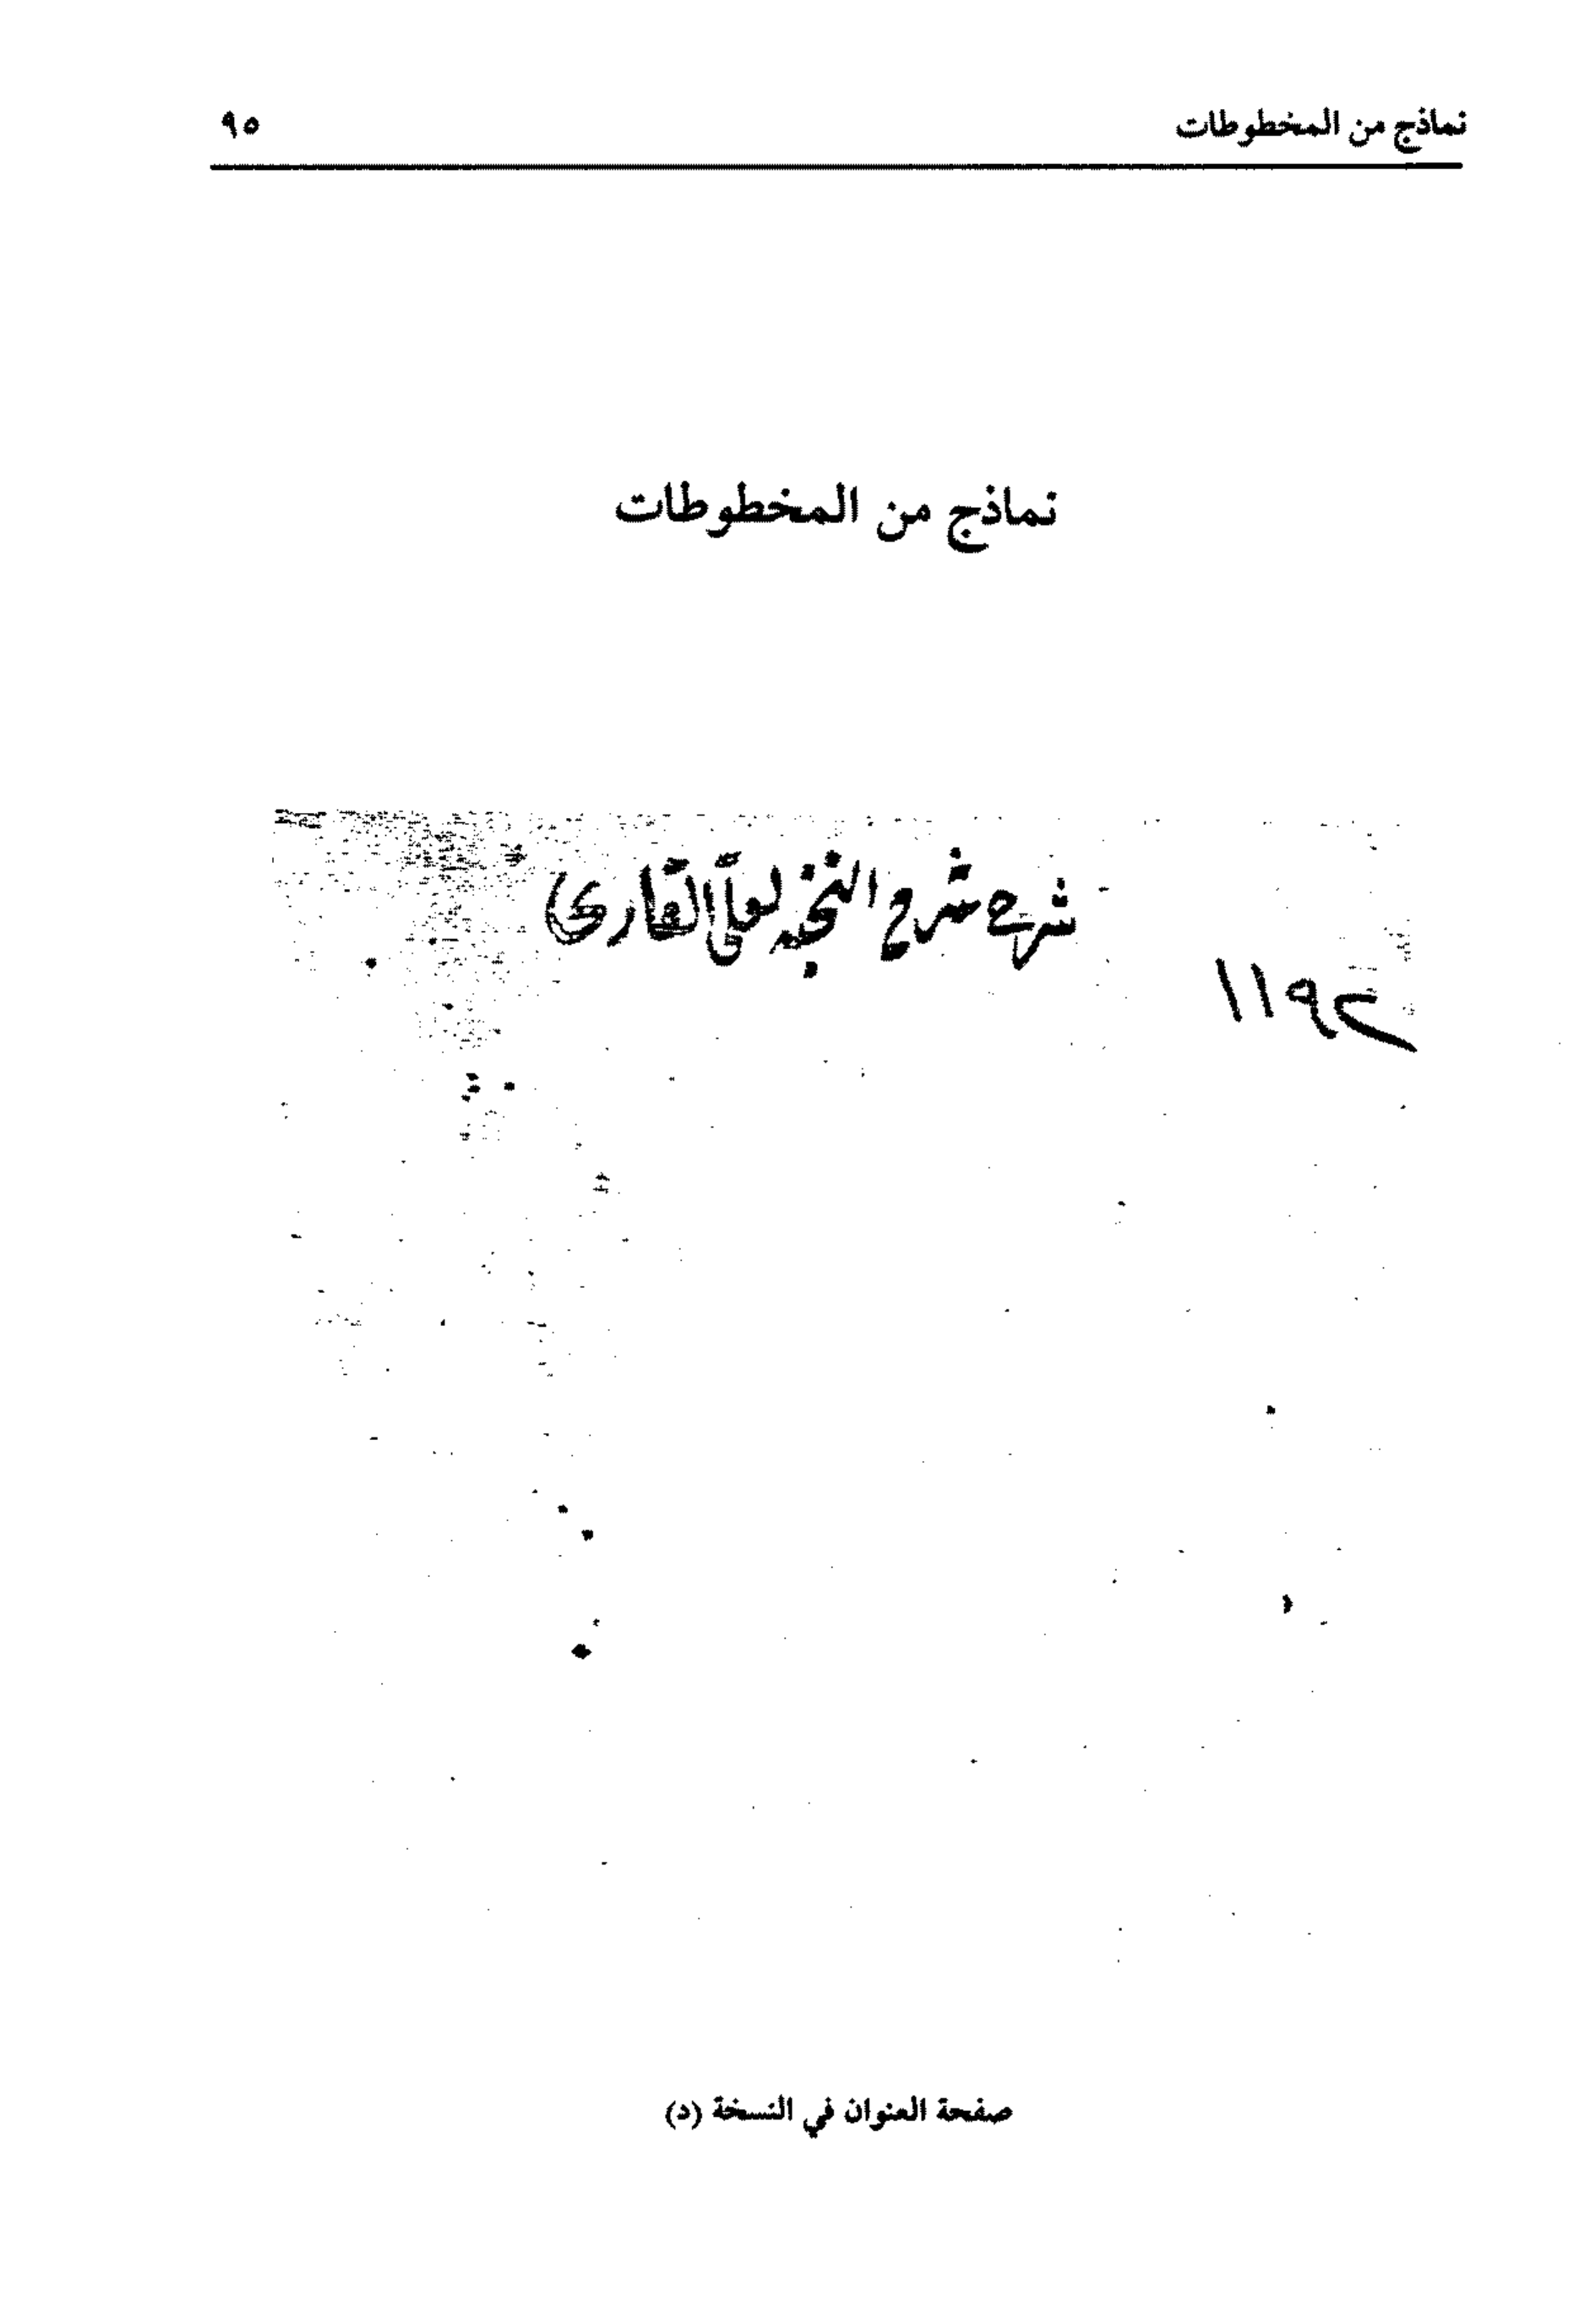 نماذج من المخطوطات ٩٥
نماذج من المخطوطات
شرح شرح النخبه لعلى القارى
١١٩٢
صفحة العنوان في النسخة (د)